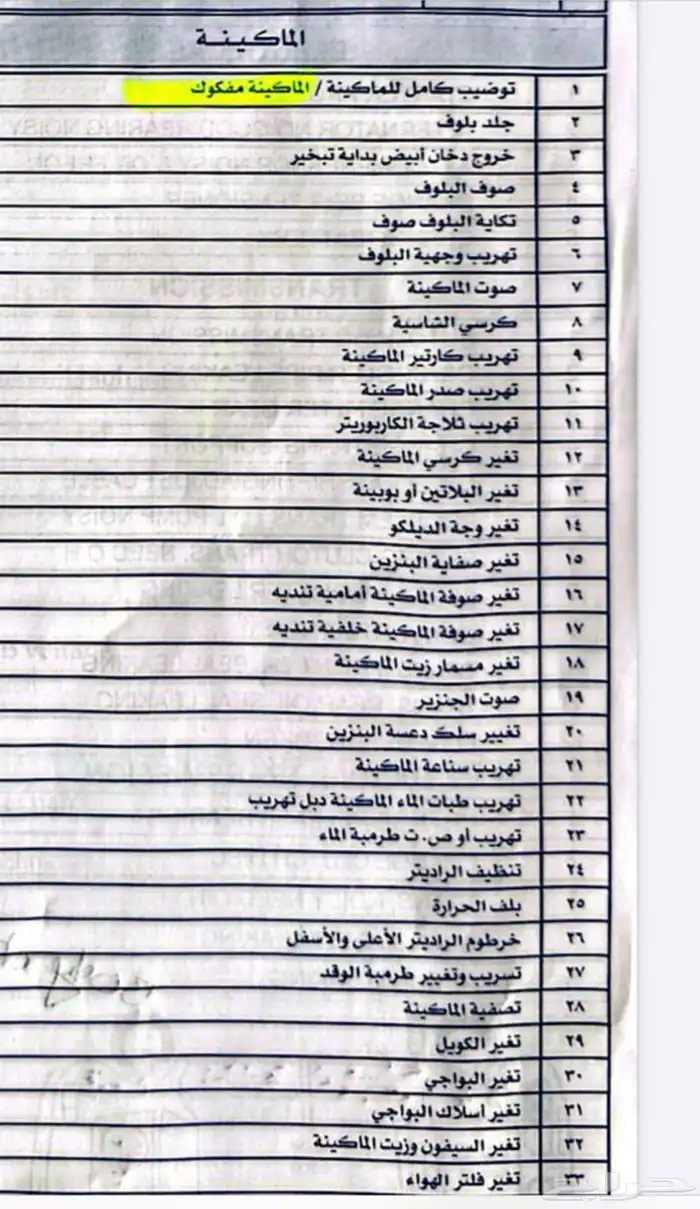 الماكينة
١ توضيب كامل للماكينة / الماكينة مفكوك
٢ جلد بلوف
٣ خروج دخان أبيض بداية تبخير
٤ صوف البلوف
٥ تكاية البلوف صوف
٦ تهريب وجهية البلوف
٧ صوت الماكينة
٨ كرسي الشاسية
٩ تهريب كارتير الماكينة
١٠ تهريب صدر الماكينة
١١ تهريب ثلاجة الكاربوريتر
١٢ تغير كرسي الماكينة
١٣ تغير البلاتين أو بوبينة
١٤ تغير وجة الديلكو
١٥ تغير صفاية البنزين
١٦ تغير صوفة الماكينة أمامية تنديه
١٧ تغير صوفة الماكينة خلفية تنديه
١٨ تغير مسمار زيت الماكينة
١٩ صوت الجنزير
٢٠ تغيير سلك دعسة البنزين
٢١ تهريب سناعة الماكينة
٢٢ تهريب طبات الماء الماكينة دبل تهريب
٢٣ تهريب أو ص.ت طرمبة الماء
٢٤ تنظيف الراديتر
٢٥ بلف الحرارة
٢٦ خرطوم الراديتر الأعلى والأسفل
٢٧ تسريب وتغيير طرمبة الوقد
٢٨ تصفية الماكينة
٢٩ تغير الكويل
٣٠ تغير البواجي
٣١ تغير أسلاك البواجي
٣٢ تغير السيفون وزيت الماكينة
٣٣ تغير فلتر الهواء
حراج